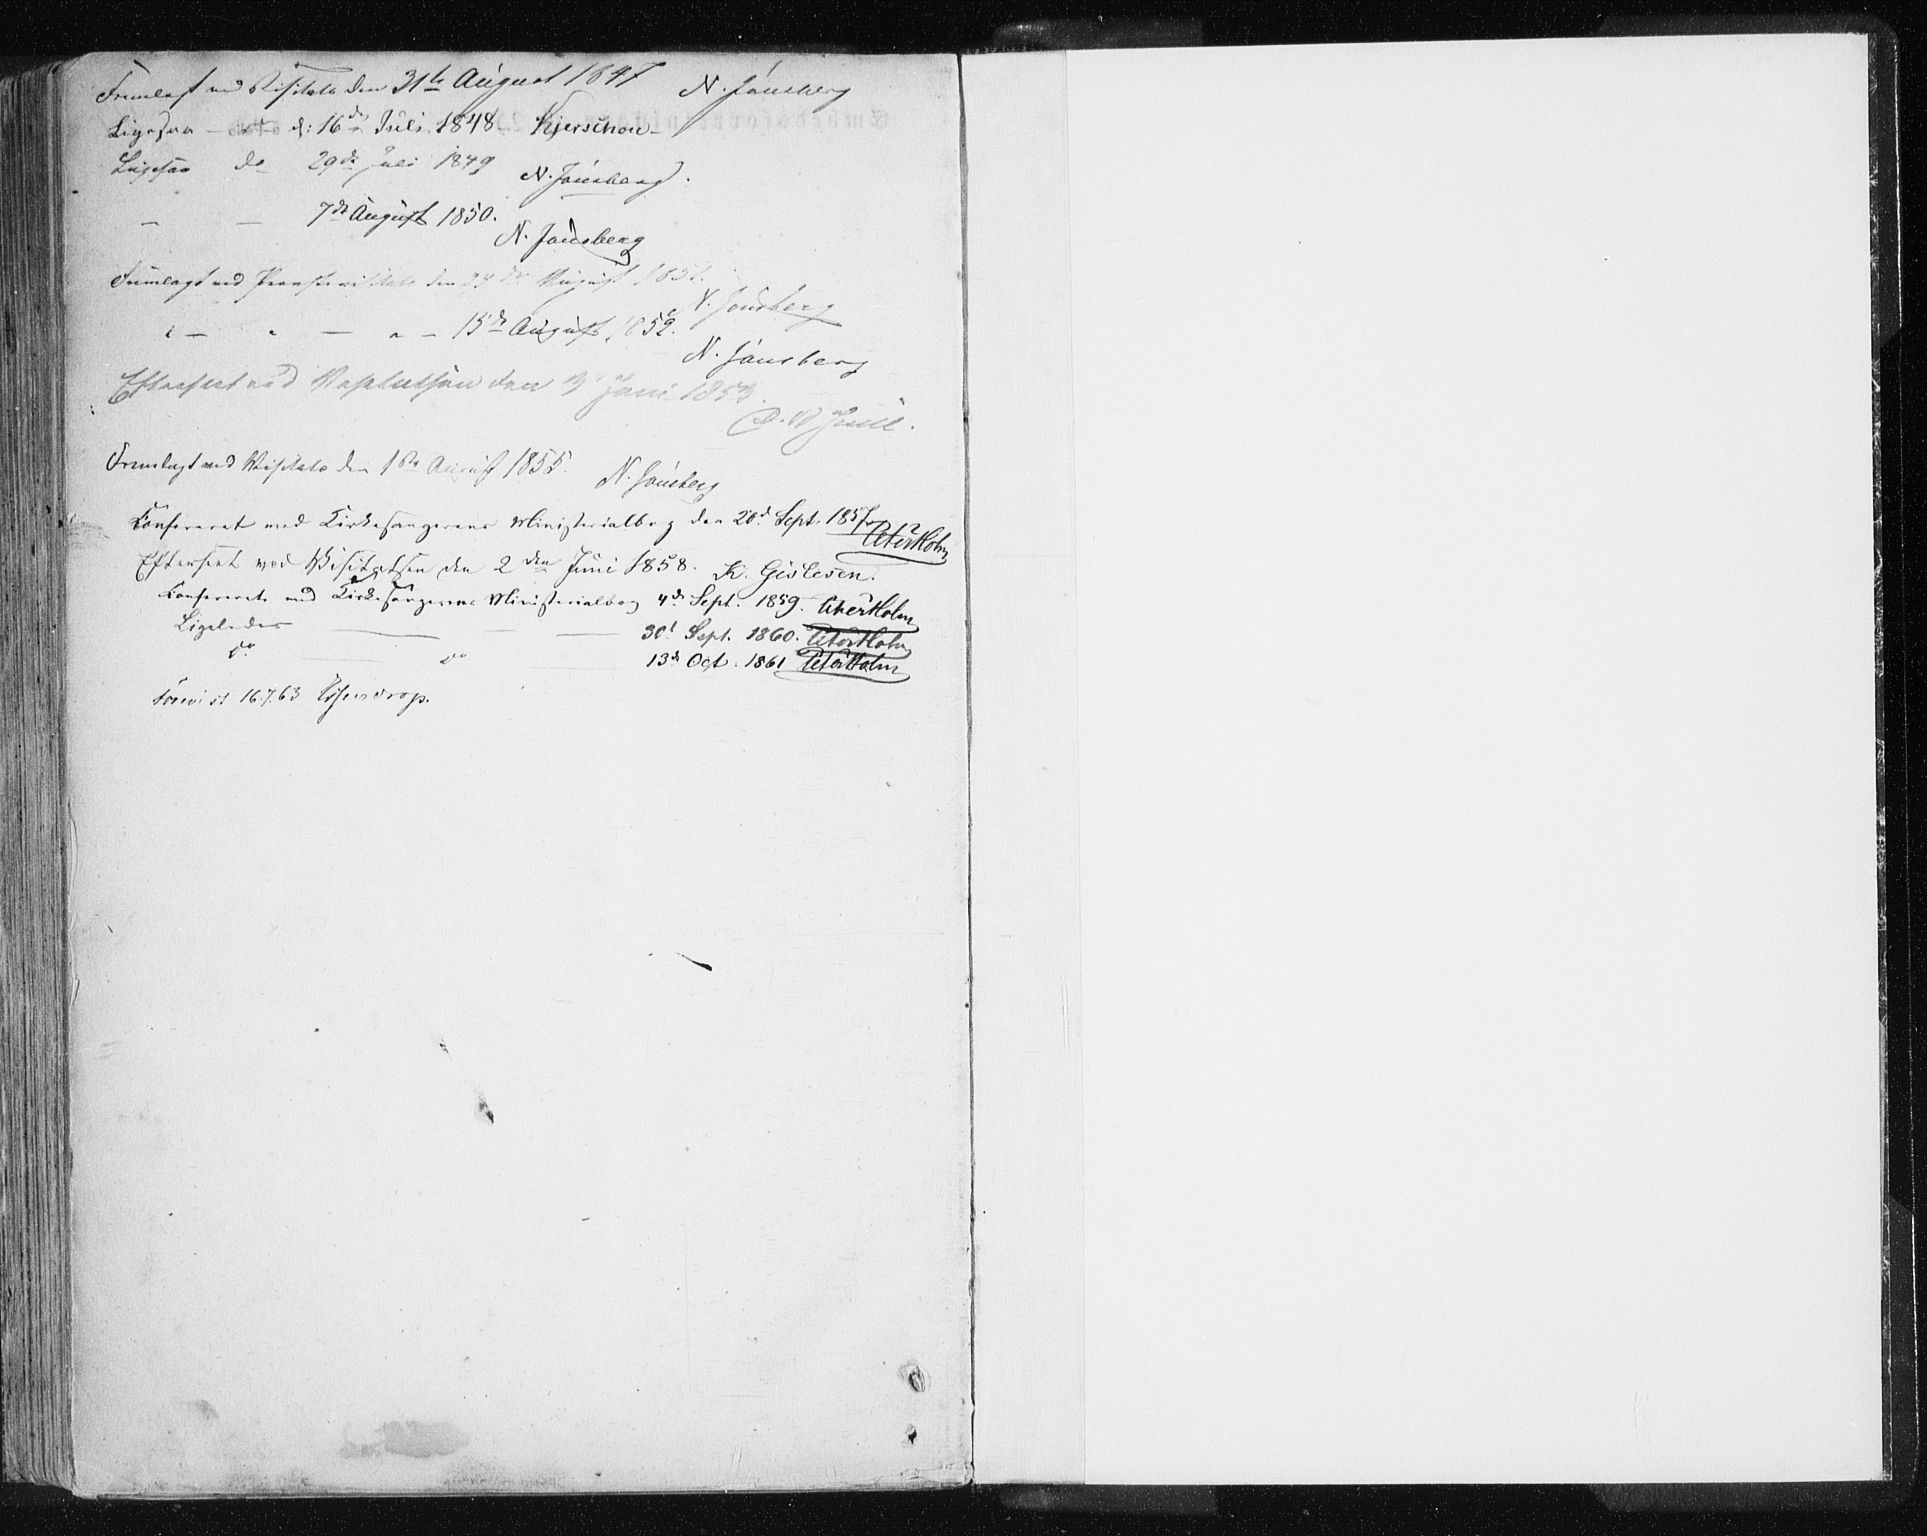 Fremlagt ved Visitats den 31te August 1847 N. Jansberg
Ligesaa d: 16de Juli 1848 Kjerschow
Ligesaa do 29de Juli 1849 N. Jansberg.
— — 7de August 1850.
N. Jansberg
Fremlagt ved Provstevisitats den August 185
N. Jansberg
" — " — " — 15de August 1852.
N. Jansberg
Efterseet ved Visitatsen den Juni 1853.
Juell.
Fremlagt ved Visitats den August 1855. N. Jansberg
Confereret med Kirkesangerens Ministerialbog den 20d Sept. 1857 Peter Holm
Efterseet ved Visitatsen den 2den Juni 1858. K. Gislesen.
Confereret med Kirkesangerens Ministerialbog 4de Sept. 1859. Peter Holm
Ligeledes — — — 30t Sept. 1860. Peter Holm
do — do — 13de Oct. 1861 Peter Holm
Forevist 16.7.63